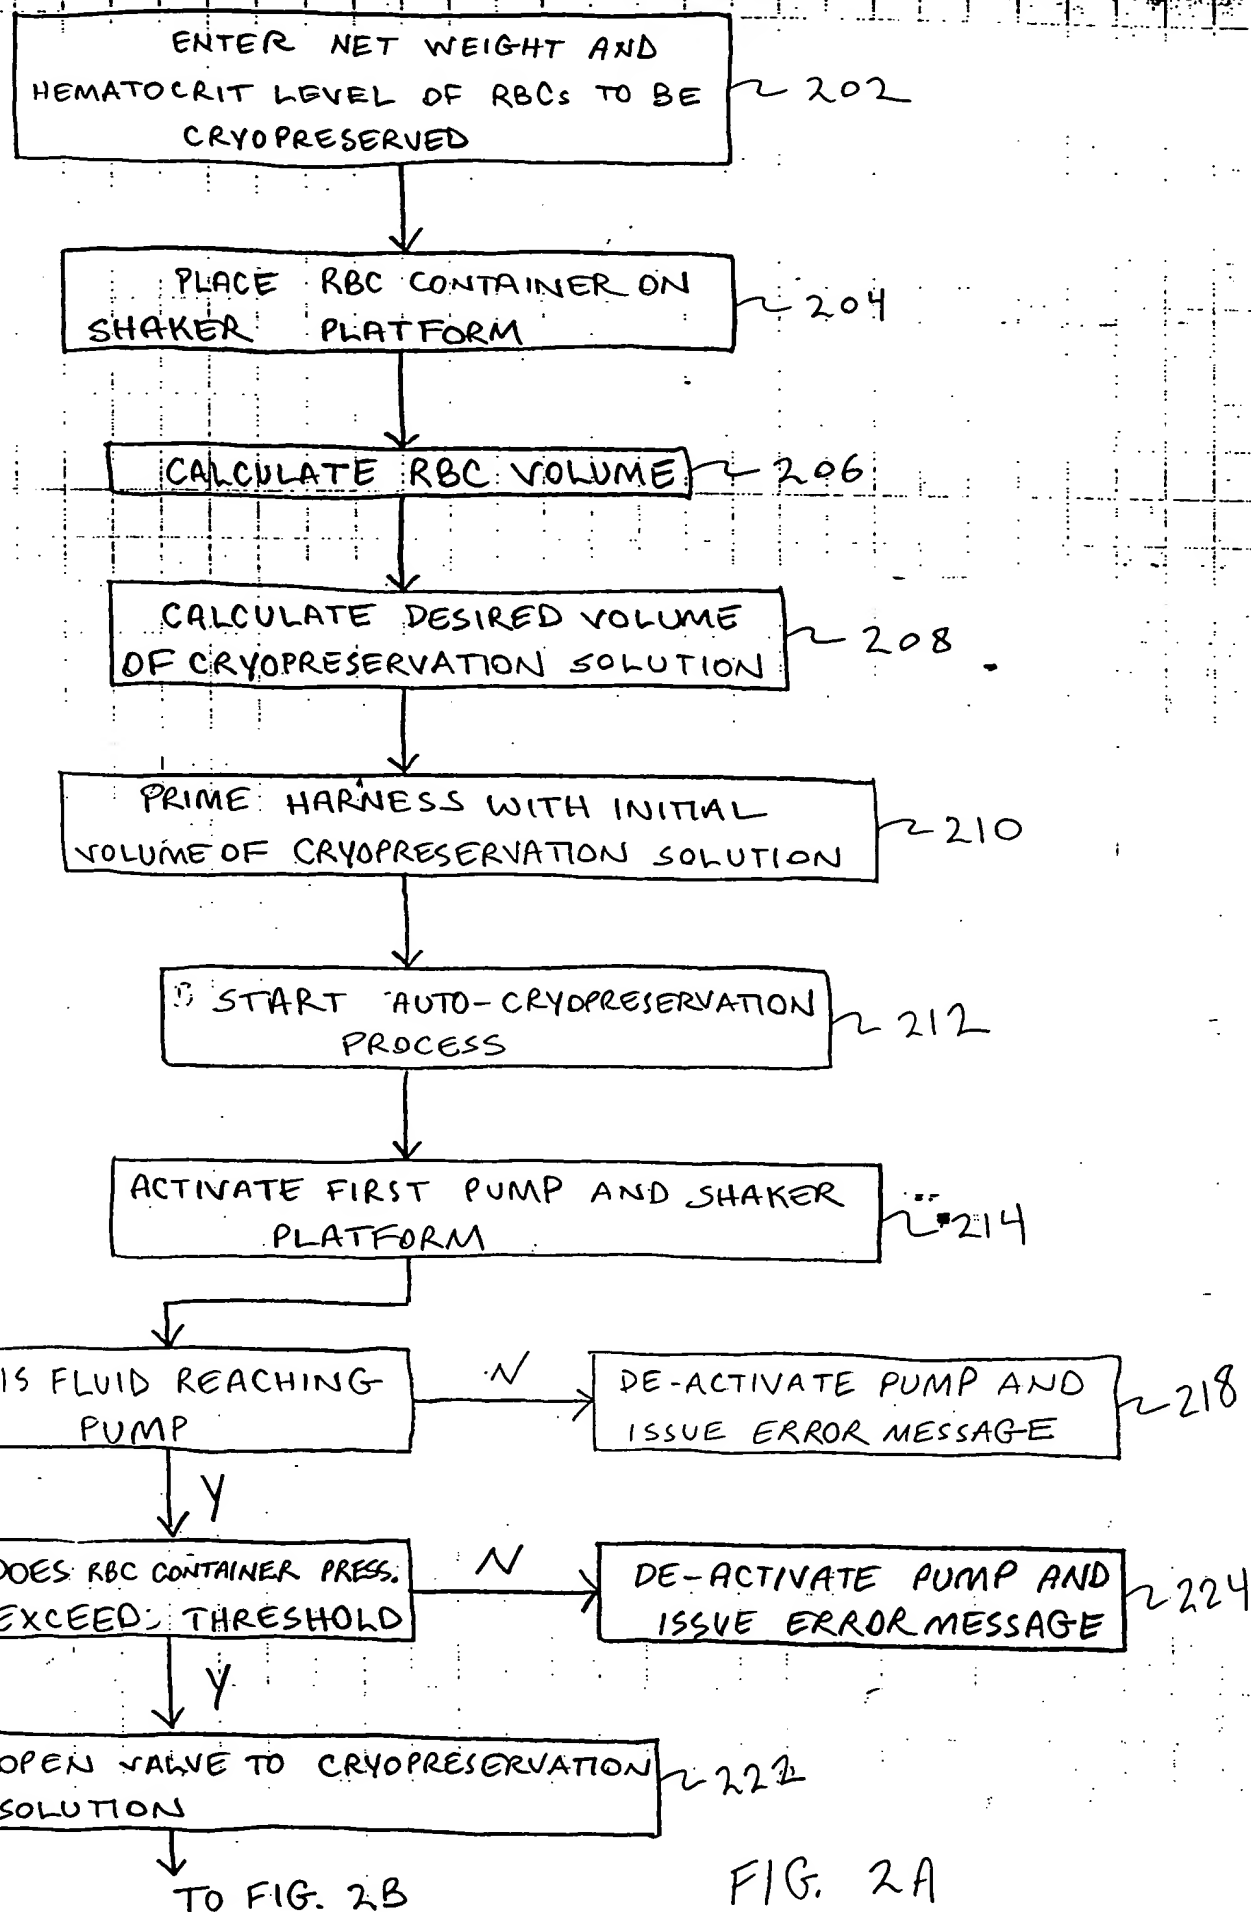 ENTER NET WEIGHT AND
HEMATOCRIT LEVEL OF RBCs TO BE
CRYOPRESERVED
202
PLACE RBC CONTAINER ON
SHAKER PLATFORM
204
CALCULATE RBC VOLUME
206
CALCULATE DESIRED VOLUME
OF CRYOPRESERVATION SOLUTION
208
PRIME HARNESS WITH INITIAL
VOLUME OF CRYOPRESERVATION SOLUTION
210
START AUTO-CRYOPRESERVATION
PROCESS
212
ACTIVATE FIRST PUMP AND SHAKER
PLATFORM
214
IS FLUID REACHING
PUMP
N
DE-ACTIVATE PUMP AND
ISSUE ERROR MESSAGE
218
Y
DOES RBC CONTAINER PRESS.
EXCEED THRESHOLD
N
DE-ACTIVATE PUMP AND
ISSUE ERROR MESSAGE
224
Y
OPEN VALVE TO CRYOPRESERVATION
SOLUTION
222
TO FIG. 2B
FIG. 2A